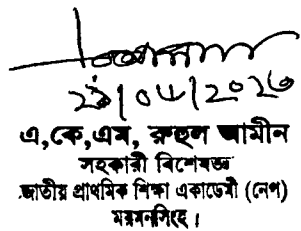 এ,কে,এম, রুহুল আমীন
সহকারী বিশেষজ্ঞ
জাতীয় প্রাথমিক শিক্ষা একাডেমী (নেপ)
ময়মনসিংহ।